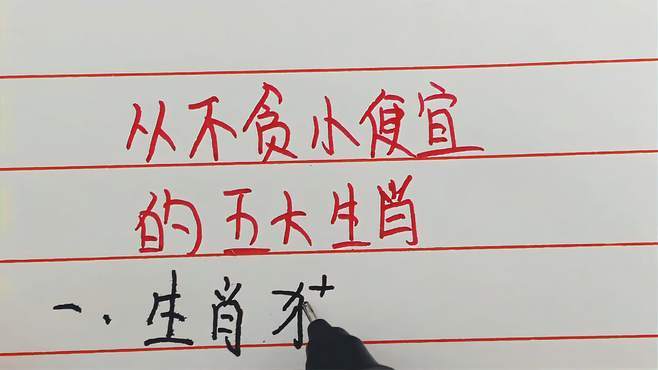 从不贪小便宜
的五大生肖
一.生肖